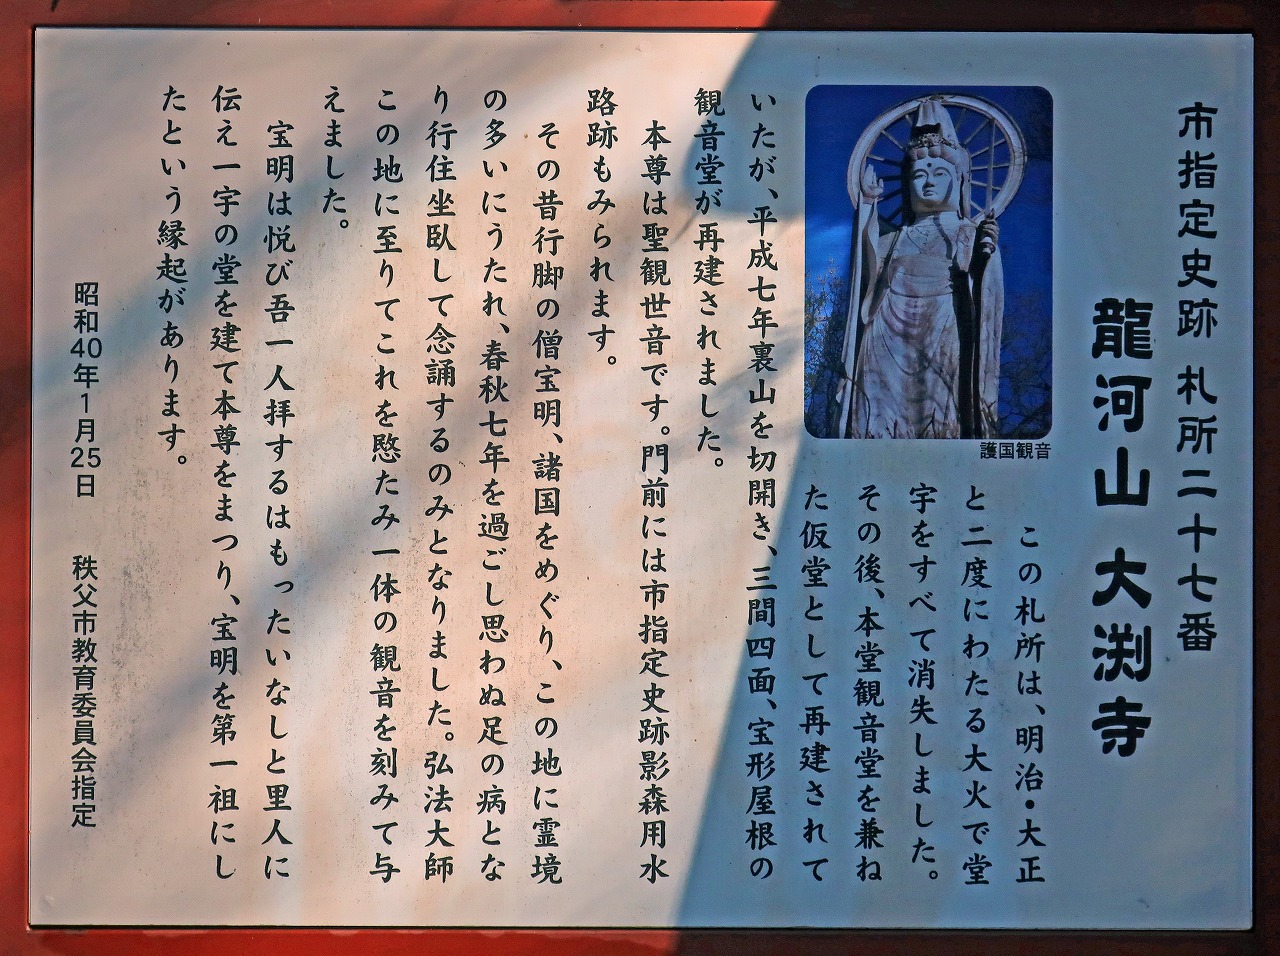 市指定史跡 札所二十七番
龍河山 大渕寺
この札所は、明治・大正
と二度にわたる大火で堂
宇をすべて消失しました。
その後、本堂観音堂を兼ね
た仮堂として再建されて
いたが、平成七年裏山を切開き、三間四面、宝形屋根の
観音堂が再建されました。
本尊は聖観世音です。門前には市指定史跡影森用水
路跡もみられます。
その昔行脚の僧宝明、諸国をめぐり、この地に霊境
の多いにうたれ、春秋七年を過ごし思わぬ足の病とな
り行住坐臥して念誦するのみとなりました。弘法大師
この地に至りてこれを愍たみ一体の観音を刻みて与
えました。
宝明は悦び吾一人拝するはもったいなしと里人に
伝え一宇の堂を建て本尊をまつり、宝明を第一祖にし
たという縁起があります。
昭和40年1月25日 秩父市教育委員会指定
護国観音